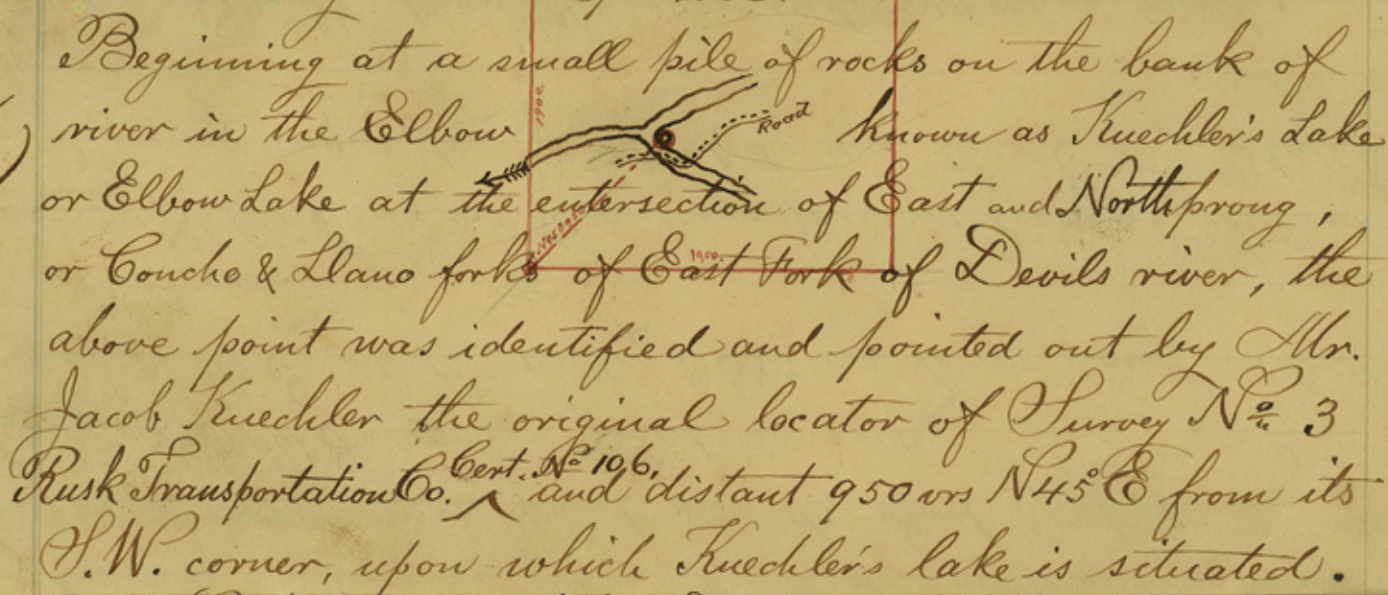 Beginning at a small pile of rocks on the bank of
river in the Elbow known as Kuechler's Lake
Road
1900.
or Elbow Lake at the entersection of East and North prong,
or Concho & Llano forks of East Fork of Devils river, the
1900.
above point was identified and pointed out by Mr.
Jacob Kuechler the original locator of Survey No. 3
Rusk Transportation Co. Cert. No. 106, and distant 950 vrs N45°E from its
S.W. corner, upon which Kuechler's lake is situated.